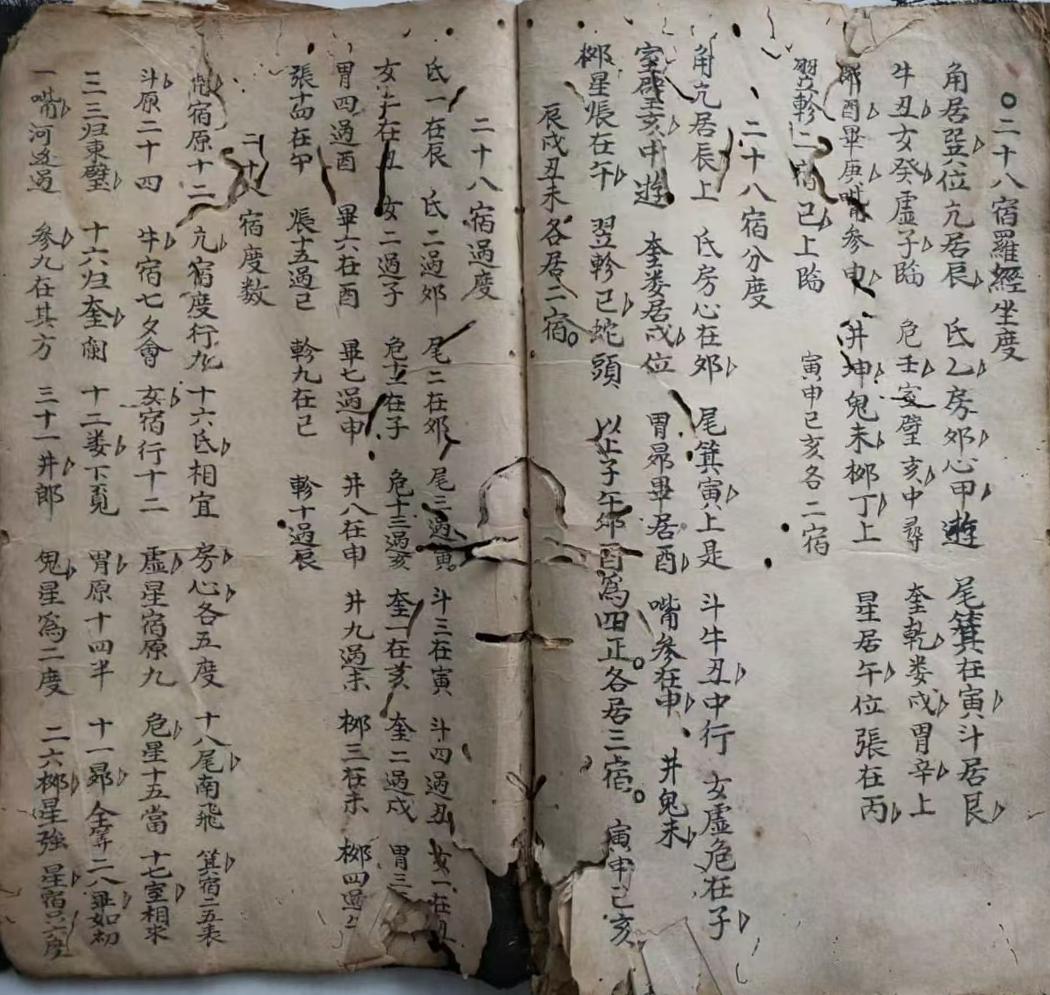 ○二十八宿羅經坐度
角居巽位亢居辰 氐乙房郊心甲遊 尾箕在寅斗居艮
牛丑女癸虛子臨 危壬室壁亥中尋 奎乾娄戌胃辛上
酉畢庚嘴參申 井坤鬼未柳丁上 星居午位張在丙
翌軫二宿己上臨 寅申己亥各二宿
二十八宿分度
角亢居辰上 氐房心在郊 尾箕寅上是 斗牛丑中行 女虛危在子
室壁亥中遊 奎娄居戌位 胃昴畢居酉 嘴參在申 井鬼未
柳星張在午 翌軫己蛇頭 以上子午郊酉為四正各居三宿。寅申己亥
辰戌丑未各居二宿。
二十八宿過度
氐一在辰 氐二過郊 尾二在郊 尾三過寅 斗三在寅 斗四過丑 女一在丑
女在丑 女二過子 危在子 危十三過亥 奎一在亥 奎二過戌 胃三
胃四過酉 畢六在酉 畢七過申 井八在申 井九過未 柳三在未 柳四過
張十四在午 張五過己 軫九在己 軫十過辰
二十八宿度数
宿原十二 亢宿度行九 十六氐相宜 房心各五度 十八尾南飛 箕宿二五表
斗原二十四 牛宿七夕會 女宿行十二 虛星宿原九 危星十五當 十七室相求
三三归東壁 十六归奎闌 十二娄下覓 胃原十四半 十一昴全算 二八畢如初
一嘴河逐過 參九在其方 三十一井郎 鬼星為二度 二六柳星強 星宿只六度